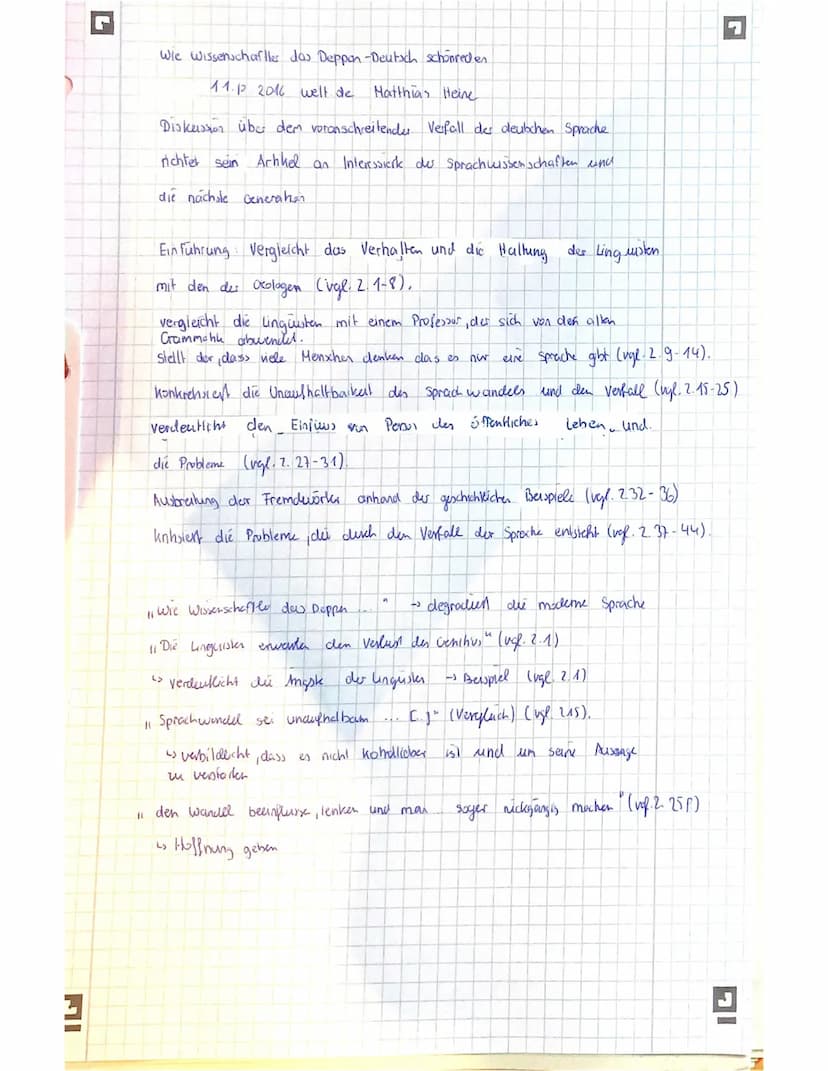 Wie Wissenschaftler das Deppen-Deutsch schönreden
2016 welt de Matthias Heine
Diskussion über dem voranschreitender Verfall der deutschen Sprache
richtet sein Artikel an Interessierte der Sprachwissenschaften und
die nächste Generation
Einführung: Vergleicht das Verhalten und die Haltung der Linguisten
mit den der Ökologen (vgl. Z. 1-8).
vergleicht die Linguisten mit einem Professor, der sich von der alten
Grammatik abwendet.
stellt dar, dass viele Menschen denken das es nur eine Sprache gibt (vgl. Z. 9-14).
konkretisiert die Unaufhaltbarkeit des Sprachwandels und den Verfall (vgl. Z. 15-25)
verdeutlicht den Einfluss von des öffentliches Leben und
die Probleme (vgl. Z. 27-31)
Ausbreitung der Fremdwörter anhand der geschichtlichen Beispiele (vgl. Z. 32-36)
kritisiert die Probleme, die durch den Verfall der Sprache entsteht (vgl. Z. 37-44).
"Wie Wissenschaftler das Deppen ..." → degradiert die moderne Sprache
"Die Linguisten erwarten den Verlust des Genitivs" (vgl. Z. 1)
↳ verdeutlicht die Ängste der Linguisten → Beispiel (vgl. Z. 1)
"Sprachwandel sei unaufhaltbar ... [...]" (Vergleich) (vgl. Z. 15).
↳ verbildlicht, dass es nicht ist und um seine Aussage
zu verstärken
"den Wandel beeinflusse, lenken und man sogar rückgängig machen" (vgl. Z. 25f)
↳ Hoffnung geben